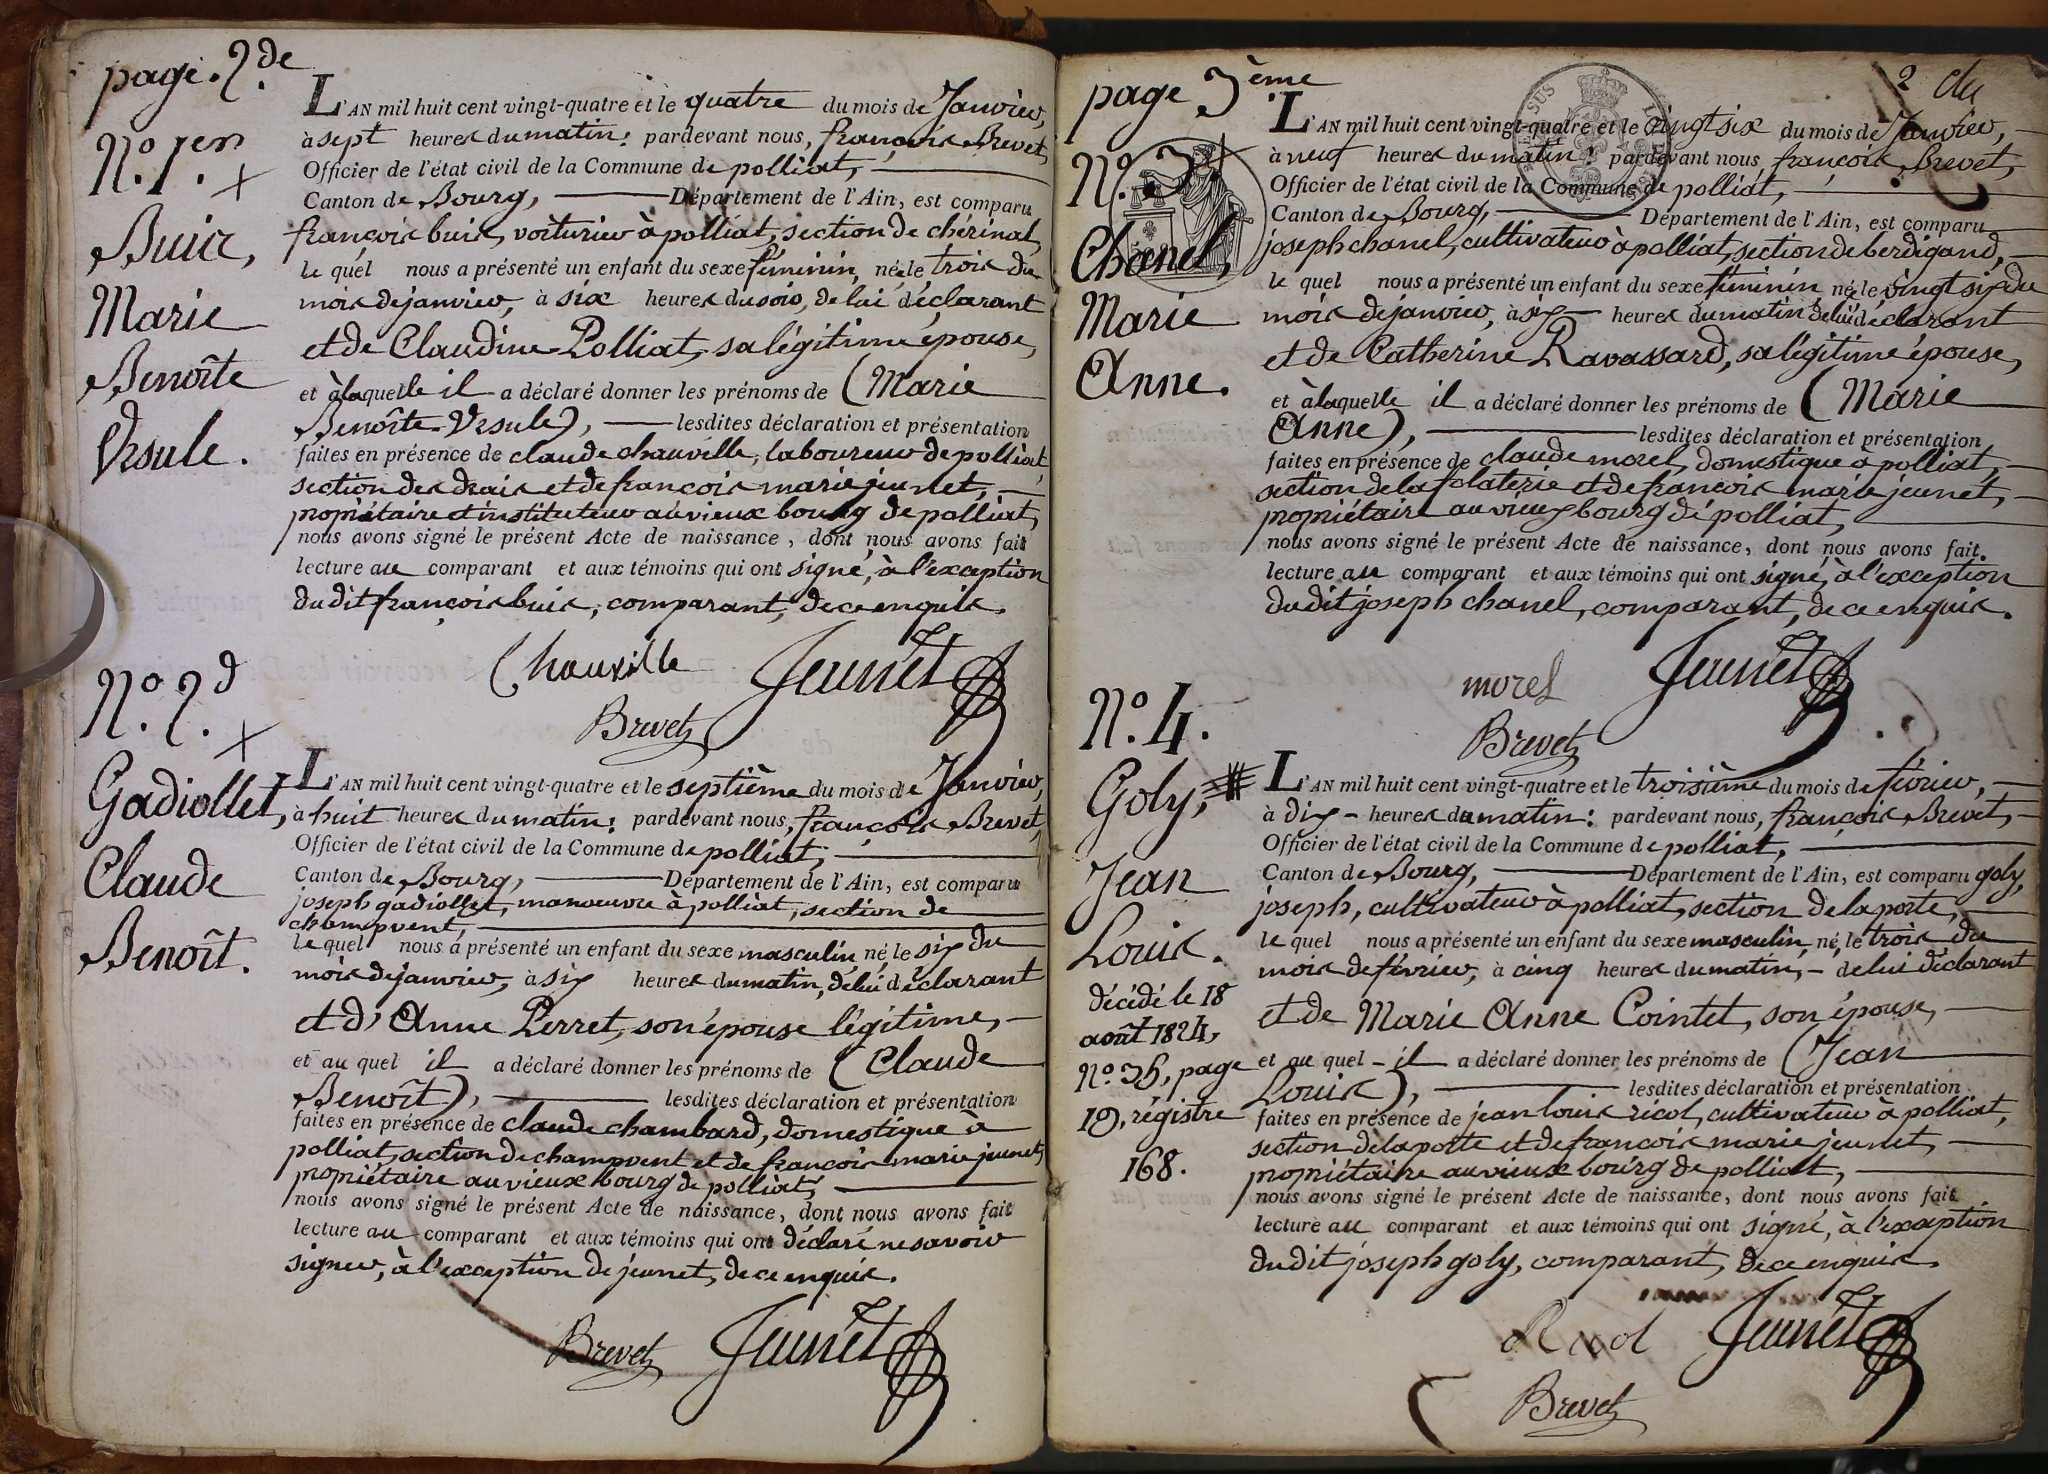 page. 2.de
N.o 1.er
Buis,
Marie
Benoîte
Ursule.
L'AN mil huit cent vingt-quatre et le quatre du mois de Janvier,
à sept heures du matin: pardevant nous, françois Brevet,
Officier de l'état civil de la Commune de polliat,
Canton de Bourg, Département de l'Ain, est comparu
françois buis, voiturier à polliat, section de chérinal,
le quel nous a présenté un enfant du sexe féminin, né le trois du
mois de janvier, à six heures du soir, de lui déclarant
et de Claudine Polliat, sa légitime épouse,
et à laquelle il a déclaré donner les prénoms de (Marie
Benoîte Ursule), lesdites déclaration et présentation
faites en présence de claude chauville, laboureur de polliat,
section des drais et de françois marie jeunet,
propriétaire et instituteur au vieux bourg de polliat,
nous avons signé le présent Acte de naissance, dont nous avons fait
lecture au comparant et aux témoins qui ont signé, à l'exception
du dit françois buis, comparant, de ce enquis.
Chauville Jeunet
Brevet
N.o 2.d
Gadiollet,
Claude
Benoît.
L'AN mil huit cent vingt-quatre et le septième du mois de Janvier,
à huit heures du matin: pardevant nous, françois Brevet,
Officier de l'état civil de la Commune de polliat,
Canton de Bourg, Département de l'Ain, est comparu
joseph gadiollet, manoeuvre à polliat, section de
champvent,
le quel nous a présenté un enfant du sexe masculin, né le six du
mois de janvier, à six heures du matin, de lui déclarant
et d'Anne Perret, son épouse légitime,
et au quel il a déclaré donner les prénoms de (Claude
Benoît), lesdites déclaration et présentation
faites en présence de claude chambard, domestique à
polliat, section de champvent et de françois marie jeunet,
propriétaire au vieux bourg de polliat,
nous avons signé le présent Acte de naissance, dont nous avons fait
lecture au comparant et aux témoins qui ont déclaré ne savoir
signer, à l'exception de jeunet, de ce enquis.
Brevet Jeunet
page 3.ème
2 du
N.o 3.
Chanel,
Marie
Anne.
L'AN mil huit cent vingt-quatre et le vingt six du mois de Janvier,
à neuf heures du matin: pardevant nous, françois Brevet,
Officier de l'état civil de la Commune de polliat,
Canton de Bourg, Département de l'Ain, est comparu
joseph chanel, cultivateur à polliat, section de berdigand,
le quel nous a présenté un enfant du sexe féminin né le vingt six du
mois de janvier, à six heures du matin de lui déclarant
et de Catherine Ravassard, sa légitime épouse,
et à laquelle il a déclaré donner les prénoms de (Marie
Anne), lesdites déclaration et présentation
faites en présence de claude morel, domestique à polliat,
section de la folaterie et de françois marie jeunet,
propriétaire au vieux bourg de polliat,
nous avons signé le présent Acte de naissance, dont nous avons fait
lecture au comparant et aux témoins qui ont signé, à l'exception
du dit joseph chanel, comparant, de ce enquis.
morel Jeunet
Brevet
N.o 4.
Goly,
Jean
Louis.
décédé le 18
août 1824,
N.o 36, page
19, régistre
168.
L'AN mil huit cent vingt-quatre et le troisième du mois de février,
à dix heures du matin: pardevant nous, françois Brevet,
Officier de l'état civil de la Commune de polliat,
Canton de Bourg, Département de l'Ain, est comparu goly,
joseph, cultivateur à polliat, section de la porte,
le quel nous a présenté un enfant du sexe masculin, né le trois du
mois de février, à cinq heures du matin, de lui déclarant
et de Marie Anne Cointet, son épouse,
et au quel il a déclaré donner les prénoms de (Jean
Louis), lesdites déclaration et présentation
faites en présence de jean louis ricol, cultivateur à polliat,
section de la porte et de françois marie jeunet,
propriétaire au vieux bourg de polliat,
nous avons signé le présent Acte de naissance, dont nous avons fait
lecture au comparant et aux témoins qui ont signé, à l'exception
du dit joseph goly, comparant, de ce enquis.
Ricol Jeunet
Brevet